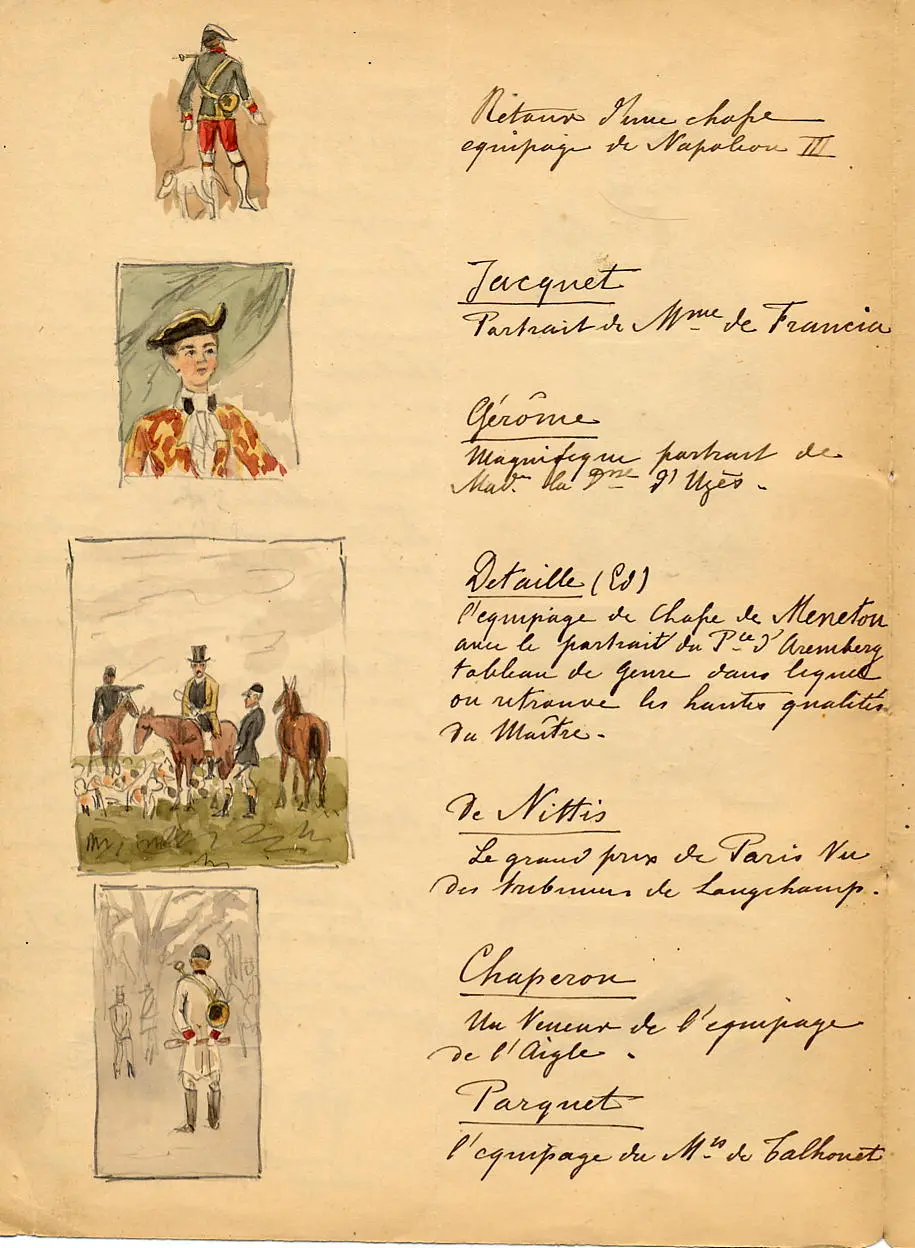 Retour d'une chasse
equipage de Napoléon III
Jacquet
Portrait de Mme de Francia
Gérôme
Magnifique portrait de
Made la Dsse d'Uzès.
Detaille (Ed)
l'equipage de chasse de Meneton
avec le portrait du Pce d'Aremberg
tableau de genre dans lequel
on retrouve les hautes qualités
du Maître.
de Nittis
Le grand prix de Paris Vu
des tribunes de Longchamp.
Chaperon
Un Veneur de l'equipage
de l'Aigle.
Parquet
l'equipage du Mis de Talhouet